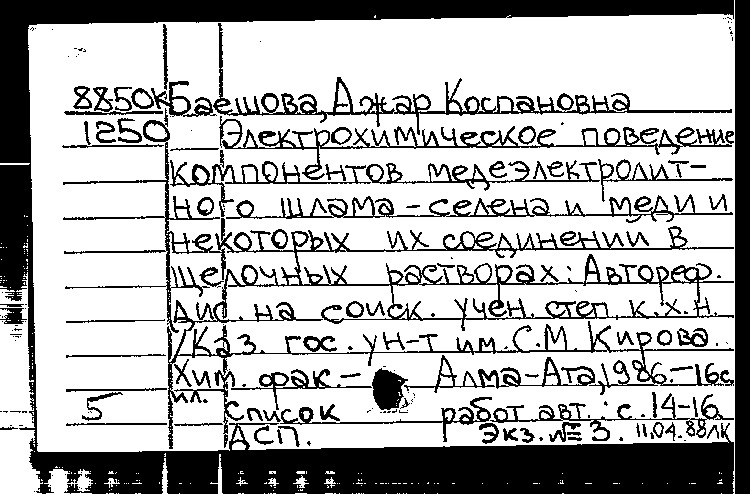 8850к Баешова, Ажар Коспановна
1250 Электрохимическое поведение
компонентов медеэлектролит-
ного шлама - селена и меди и
некоторых их соединений в
щелочных растворах: Автореф.
дис. на соиск. учен. степ. к.х.н.
/Каз. гос. ун-т им. С.М. Кирова.
Хим. фак. - Алма-Ата, 1986. - 16с
ил.
5 Список работ авт.: с. 14-16.
ДСП. Экз. № 3. 11.04.88 ЛК